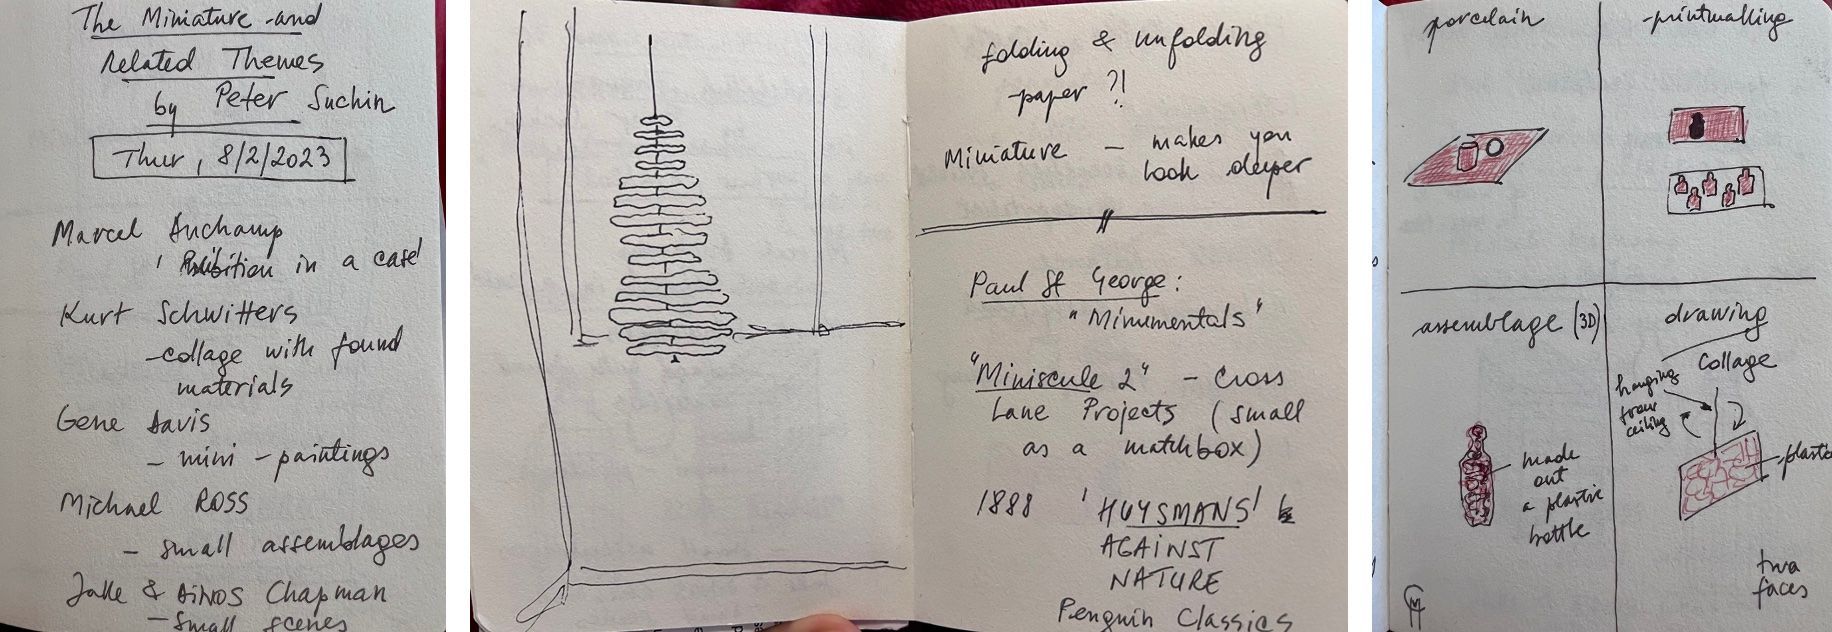 The Miniature and
Related Themes
by Peter Suchin
Thur, 8/2/2023
Marcel Duchamp
in a case'
Kurt Schwitters
- collage with found
materials
Gene Davis
- mini - paintings
Michael Ross
- small assemblages
Jake & Dinos Chapman
- small scenes
folding & unfolding
paper ?!
Miniature - makes you
look deeper
Paul St George:
"Minumentals"
"Miniscule 2" - Cross
Lane Projects (small
as a matchbox)
1888 'HUYSMANS'
AGAINST
NATURE
Penguin Classics
porcelain
printmaking
assemblage (3D)
made
out
a plastic
bottle
drawing
collage
hanging
from
ceiling
plastic
two
faces